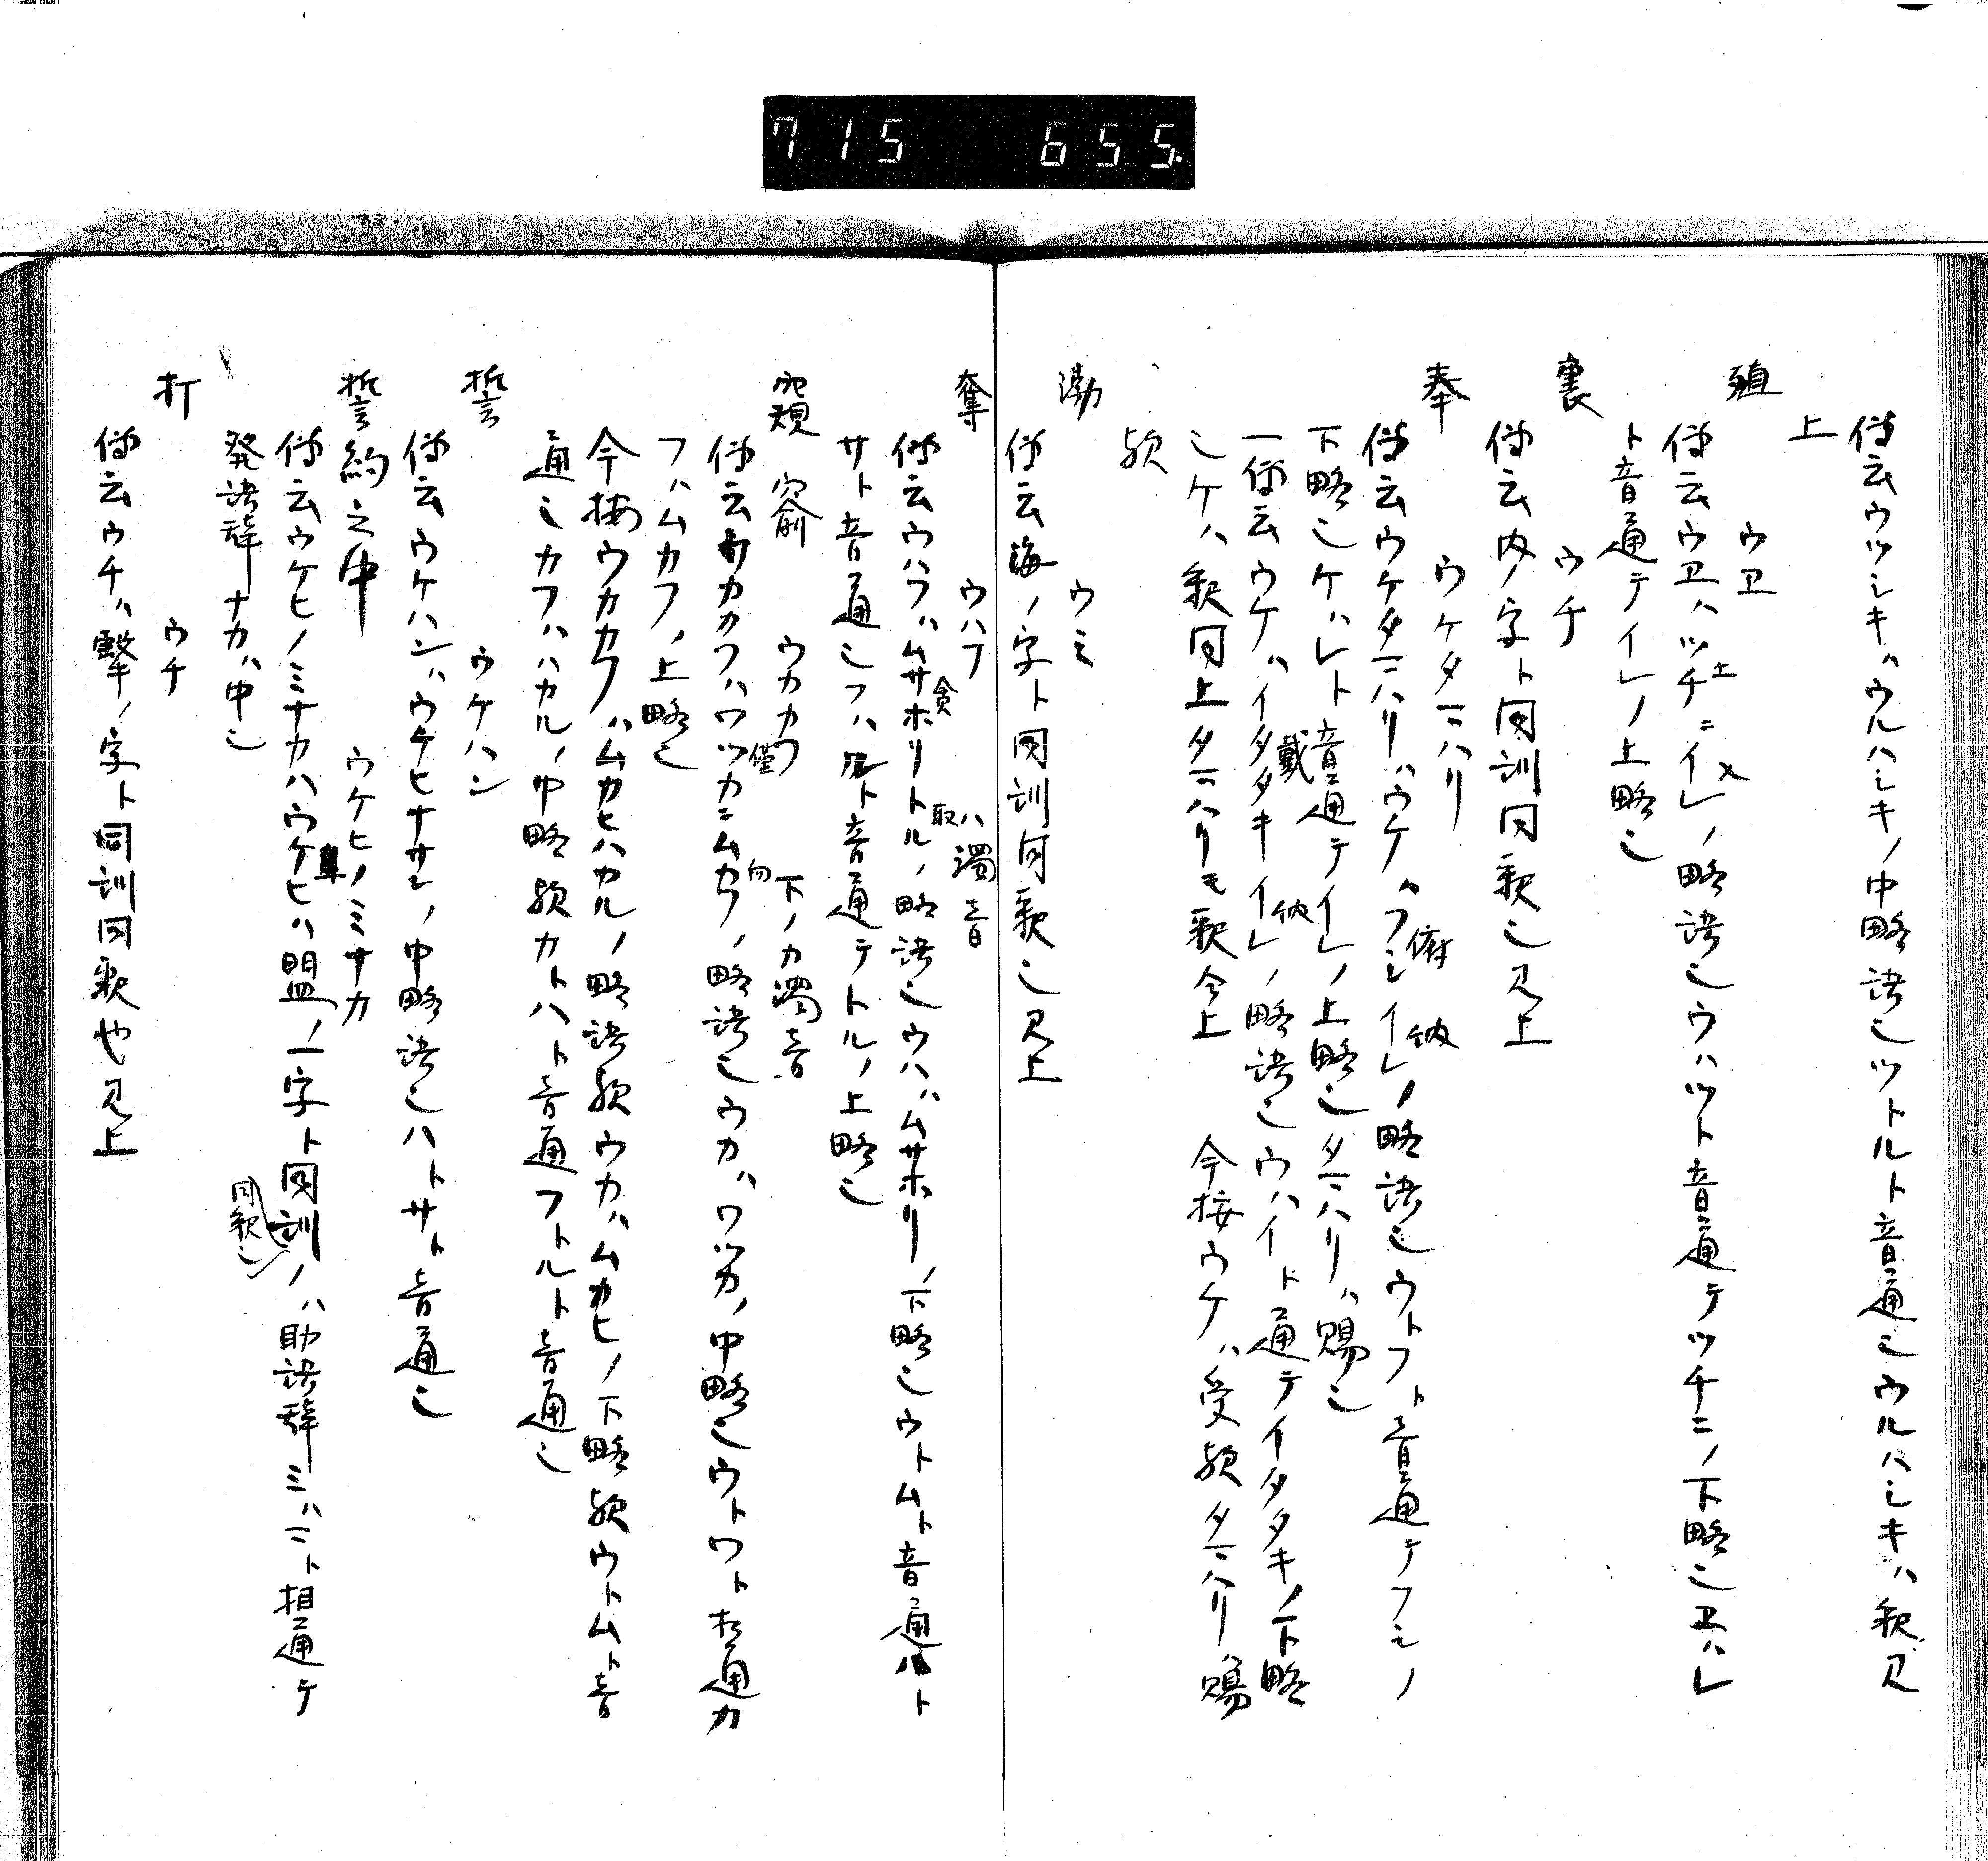 715 655.
傳云ウツシキハウルハシキノ中略語也ツトルト音通也ウルハシキハ釈見
上
殖 ウヱ
傳云ウヱハツチニイレノ略語也ウハツト音通テツチニノ下略也ヱハレ
土 入
ト音通テイレノ上略也
裏 ウチ
傳云内ノ字ト同訓同釈也見上
奉 ウケタマハリ
傳云ウケタマハリハウケハフシイレノ略語也ウトフト音通テフシノ
俯 納
下略也ケハレト音通テイレノ上略也タマハリハ賜也
一傳云ウケハイタタキイレノ略語也ウハイト通テイタタキノ下略
戴 納
也ケハ釈同上タマハリモ釈仝上 今按ウケハ受歟タマハリハ賜
歟
渤 ウミ
傳云海ノ字ト同訓同釈也見上
奪 ウハフ ハ濁音
傳云ウハフハムサホリトルノ略語也ウハハムサホリノ下略也ウトムト音通ハト
貪 取
サト音通也フハルト音通テトルノ上略也
窺 窬 ウカカフ 下ノカ濁音
傳云ウカカフハワツカニムカフノ略語也ウカハワツカノ中略也ウトワト相通カ
僅 向
フハムカフノ上略也
今按ウカカフハムカヒハカルノ略語歟ウカハムカヒノ下略歟ウトムト音
通也カフハハカルノ中略歟カトハト音通フトルト音通也
誓 ウケハン
傳云ウケハンハウケヒナサンノ中略語也ハトサト音通也
誓約之中 ウケヒノミナカ
傳云ウケヒノミナカハウケヒハ盟ノ一字ト同訓ノハ助語辞ミハマト相通テ
同釈也
発語辞ナカハ中也
打 ウチ
傳云ウチハ撃ノ字ト同訓同釈也見上